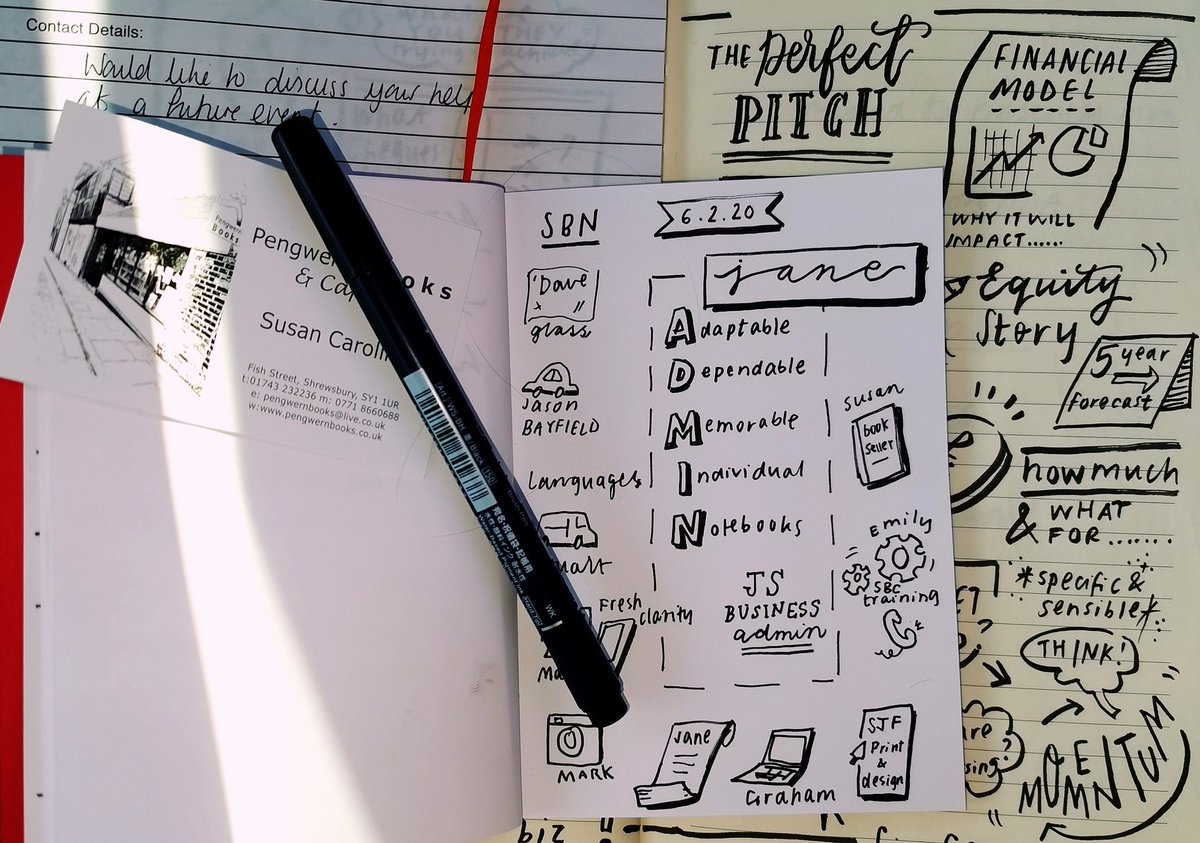 Contact Details:
Would like to discuss your help
at a future event.
Pengwern
Books
Pengwer ooks
& Ca
Susan Caroli
Fish Street, Shrewsbury, SY1 1UR
t:01743 232236 m: 0771 8660688
e: pengwernbooks@live.co.uk
w:www.pengwernbooks.co.uk
WK
SBN
6.2.20
Dave
glass
Jason
BAYFIELD
Languages
Fresh
clarity
MARK
jane
Adaptable
Dependable
Memorable
Individual
Notebooks
JS
BUSINESS
admin
Susan
book
seller
Emily
SBC
training
Jane
Graham
SJF
Print
&
design
THE Perfect
PITCH
FINANCIAL
MODEL
WHY IT WILL
IMPACT......
Equity
Story
5 year
forecast
how much
& WHAT
FOR.......
*specific &
sensible*
THINK!
MOMENTUM
biz